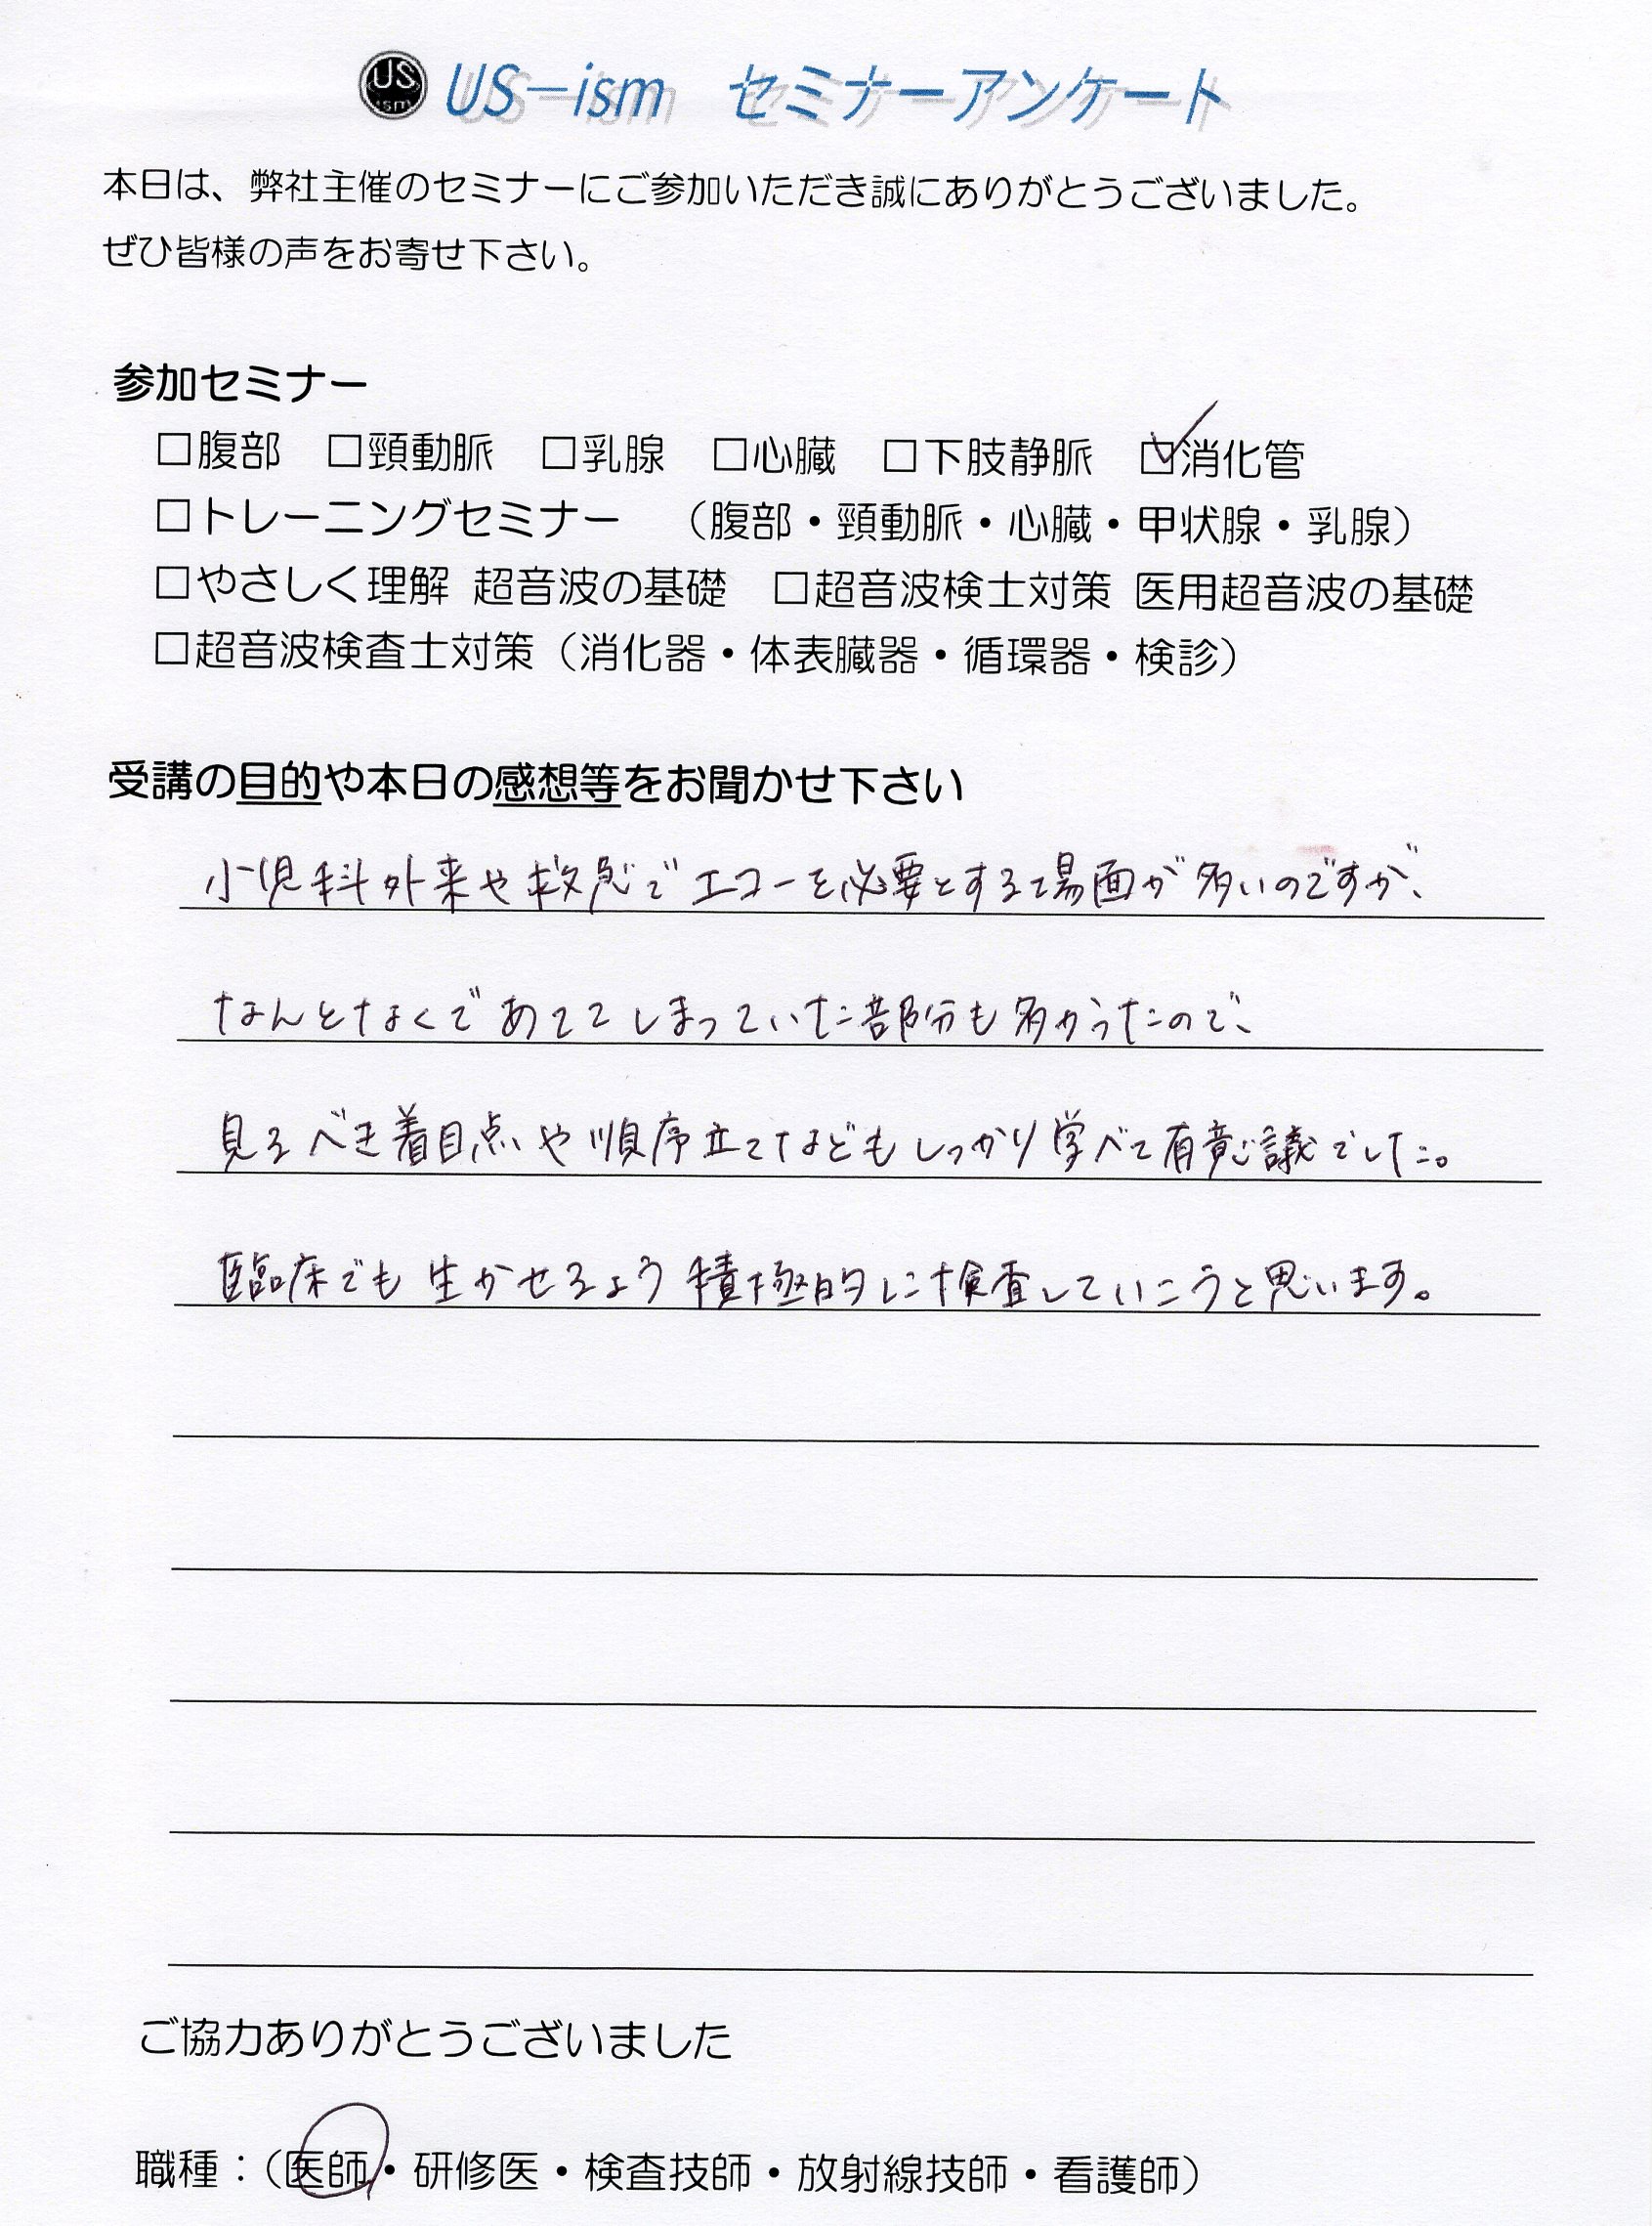 US ism US-ism セミナーアンケート
本日は、弊社主催のセミナーにご参加いただき誠にありがとうございました。
ぜひ皆様の声をお寄せ下さい。
参加セミナー
□腹部 □頸動脈 □乳腺 □心臓 □下肢静脈 ☑消化管
□トレーニングセミナー （腹部・頸動脈・心臓・甲状腺・乳腺）
□やさしく理解 超音波の基礎 □超音波検士対策 医用超音波の基礎
□超音波検査士対策（消化器・体表臓器・循環器・検診）
受講の目的や本日の感想等をお聞かせ下さい
小児科外来や救急でエコーを必要とする場面が多いのですが、
なんとなくであててしまっていた部分も多かったので、
見るべき着目点や順序立てなどもしっかり学べて有意議でした。
臨床でも生かせるよう積極的に検査していこうと思います。
ご協力ありがとうございました
職種：（医師・研修医・検査技師・放射線技師・看護師）